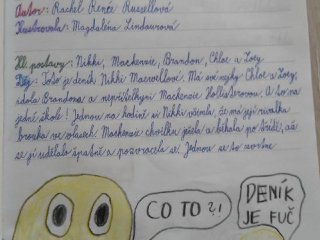 Autor: Rachel Renée Russellová
Ilustrovala: Magdaléna Lindaurová
Hl. postavy: Nikki, Mackenzie, Brandon, Chloe a Zoey
Děj: Toto je deník Nikki Maxwellové. Má své nejky Chloe a Zoey,
idola Brandona a nepřítelkyni Mackenzie Hollisterovou. A to na
jedné škole! Jednou na hodině si Nikki všimla, že má její rivalka
brouka ve vlasech. Mackenzie chvilku ječela a běhala po třídě, až
se jí udělalo špatně a pozvracela se. Jednou se to
CO TO?!
DENÍK
JE FUČ